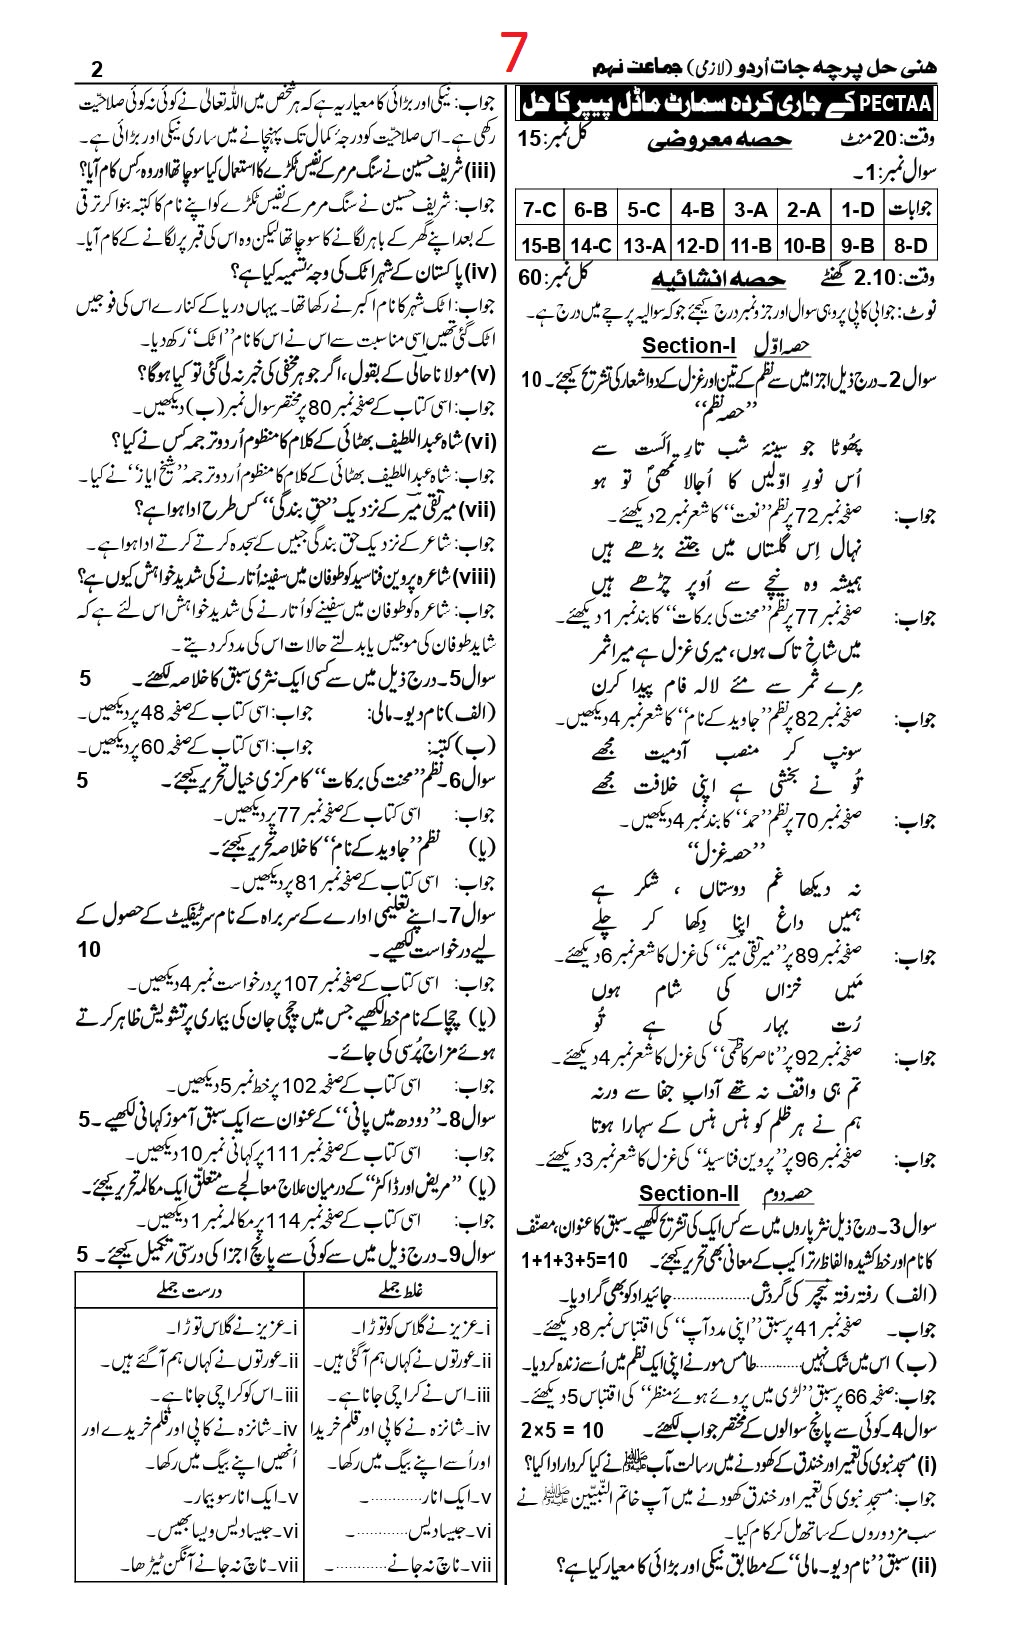 7
ھنی حل پرچہ جات اُردو (لازمی) جماعت نہم
2
PECTAA کے جاری کردہ سمارٹ ماڈل پیپر کا حل
وقت: 20 منٹ حصہ معروضی کل نمبر: 15
سوال نمبر: 1۔
جوابات 1-D 2-A 3-A 4-B 5-C 6-B 7-C
8-D 9-B 10-B 11-B 12-D 13-A 14-C 15-B
وقت: 2.10 گھنٹے حصہ انشائیہ کل نمبر: 60
نوٹ: جوابی کاپی پر وہی سوال اور جزو نمبر درج کیجئے جو کہ سوالیہ پرچے میں درج ہے۔
حصہ اوّل Section-I
سوال 2۔ درج ذیل اجزا میں سے نظم کے تین اور غزل کے دو اشعار کی تشریح کیجئے۔ 10
’’حصہ نظم‘‘
پھُوٹا جو سینۂ شب تارِ اَلَست سے
اُس نورِ اوّلیں کا اُجالا تمھی تو ہو
جواب: صفحہ نمبر 72 پر نظم ’’نعت‘‘ کا شعر نمبر 2 دیکھئے۔
نہال اِس گلستاں میں جتنے بڑھے ہیں
ہمیشہ وہ نیچے سے اُوپر چڑھے ہیں
جواب: صفحہ نمبر 77 پر نظم ’’محنت کی برکات‘‘ کا بند نمبر 1 دیکھئے۔
میں شاخِ تاک ہوں، میری غزل ہے میرا ثمر
مِرے ثمر سے مئے لالہ فام پیدا کرن
جواب: صفحہ نمبر 82 پر نظم ’’جاوید کے نام‘‘ کا شعر نمبر 4 دیکھیں۔
سونپ کر منصب آدمیت مجھے
تُو نے بخشی ہے اپنی خلافت مجھے
جواب: صفحہ نمبر 70 پر نظم ’’حمد‘‘ کا بند نمبر 4 دیکھیں۔
’’حصہ غزل‘‘
نہ دیکھا غم دوستاں ، شکر ہے
ہمیں داغ اپنا دِکھا کر چلے
جواب: صفحہ نمبر 89 پر ’’میر تقی میر‘‘ کی غزل کا شعر نمبر 6 دیکھئے۔
مَیں خزاں کی شام ہوں
رُت بہار کی ہے تُو
جواب: صفحہ نمبر 92 پر ’’ناصر کاظمی‘‘ کی غزل کا شعر نمبر 4 دیکھئے۔
تم ہی واقف نہ تھے آدابِ جفا سے ورنہ
ہم نے ہر ظلم کو ہنس ہنس کے سہارا ہوتا
جواب: صفحہ نمبر 96 پر ’’پروین فنا سید‘‘ کی غزل کا شعر نمبر 3 دیکھئے۔
حصہ دوم Section-II
سوال 3۔ درج ذیل نثر پاروں میں سے کس ایک کی تشریح لکھیے۔ سبق کا عنوان، مصنّف
کا نام اور خط کشیدہ الفاظ/ تراکیب کے معانی بھی تحریر کیجئے۔ 1+1+3+5=10
(الف) رفتہ رفتہ نیچر کی گردش.................. جائیداد کو بھی گرا دیا۔
جواب۔ صفحہ نمبر 41 پر سبق ’’اپنی مدد آپ‘‘ کی اقتباس نمبر 8 دیکھئے۔
(ب) اس میں شک نہیں............ طامس مور نے اپنی ایک نظم میں اُسے زندہ کر دیا۔
جواب: صفحہ 66 پر سبق ’’لڑی میں پروئے ہوئے منظر‘‘ کی اقتباس 5 دیکھئے۔
سوال 4۔ کوئی سے پانچ سوالوں کے مختصر جواب لکھئے۔ 2×5 = 10
(i) مسجد نبوی کی تعمیر اور خندق کے کھودنے میں رسالت مآب ﷺ نے کیا کردار ادا کیا؟
جواب: مسجدِ نبوی کی تعمیر اور خندق کھودنے میں آپ خاتم النّبیّین ﷺ نے
سب مزدوروں کے ساتھ مل کر کام کیا۔
(ii) سبق ’’نام دیو۔ مالی‘‘ کے مطابق نیکی اور بڑائی کا معیار کیا ہے؟
جواب: نیکی اور بڑائی کا معیار یہ ہے کہ ہر شخص میں اللہ تعالیٰ نے کوئی نہ کوئی صلاحیّت
رکھی ہے۔ اس صلاحیّت کو درجۂ کمال تک پہنچانے میں ساری نیکی اور بڑائی ہے۔
(iii) شریف حسین نے سنگ مرمر کے نفیس ٹکڑے کا استعمال کیا سوچا تھا اور وہ کِس کام آیا؟
جواب: شریف حسین نے سنگ مرمر کے نفیس ٹکڑے کو اپنے نام کا کتبہ بنوا کر ترقی
کے بعد اپنے گھر کے باہر لگانے کا سوچا تھا لیکن وہ اس کی قبر پر لگانے کے کام آیا۔
(iv) پاکستان کے شہر اٹک کی وجۂ تسمیہ کیا ہے؟
جواب: اٹک شہر کا نام اکبر نے رکھا تھا۔ یہاں دریا کے کنارے اس کی فوجیں
اٹک گئی تھیں اسی مناسبت سے اس نے اس کا نام ’’اٹک‘‘ رکھ دیا۔
(v) مولانا حالی کے بقول، اگر جوہر مخفی کی خبر نہ لی گئی تو کیا ہو گا؟
جواب: اسی کتاب کے صفحہ نمبر 80 پر مختصر سوال نمبر (ب) دیکھیں۔
(vi) شاہ عبداللطیف بھٹائی کے کلام کا منظوم اُردو ترجمہ کس نے کیا؟
جواب: شاہ عبداللطیف بھٹائی کے کلام کا منظوم اُردو ترجمہ ’’شیخ ایاز‘‘ نے کیا۔
(vii) میر تقی میر کے نزدیک ’’حقِ بندگی‘‘ کس طرح ادا ہوا ہے؟
جواب: شاعر کے نزدیک حق بندگی جبیں کے سجدہ کرتے کرتے ادا ہوا ہے۔
(viii) شاعرہ پروین فنا سید کو طوفان میں سفینہ اُتارنے کی شدید خواہش کیوں ہے؟
جواب: شاعرہ کو طوفان میں سفینے کو اُتارنے کی شدید خواہش اس لئے ہے کہ
شاید طوفان کی موجیں یا بدلتے حالات اس کی مدد کر دیتے۔
سوال 5۔ درج ذیل میں سے کسی ایک نثری سبق کا خلاصہ لکھئے۔ 5
(الف) نام دیو۔ مالی: جواب: اسی کتاب کے صفحہ 48 پر دیکھیں۔
(ب) کتبہ: جواب: اسی کتاب کے صفحہ 60 پر دیکھیں۔
سوال 6۔ نظم ’’محنت کی برکات‘‘ کا مرکزی خیال تحریر کیجئے۔ 5
جواب: اسی کتاب کے صفحہ نمبر 77 پر دیکھیں۔
(یا) نظم ’’جاوید کے نام‘‘ کا خلاصہ تحریر کیجئے۔
جواب: اسی کتاب کے صفحہ نمبر 81 پر دیکھیں۔
سوال 7۔ اپنے تعلیمی ادارے کے سربراہ کے نام سرٹیفکیٹ کے حصول کے
لیے درخواست لکھیے۔ 10
جواب: اسی کتاب کے صفحہ نمبر 107 پر درخواست نمبر 4 دیکھیں۔
(یا) چچا کے نام خط لکھیے جس میں چچی جان کی بیماری پر تشویش ظاہر کرتے
ہوئے مزاج پُرسی کی جائے۔
جواب: اسی کتاب کے صفحہ 102 پر خط نمبر 5 دیکھیں۔
سوال 8۔ ’’دودھ میں پانی‘‘ کے عنوان سے ایک سبق آموز کہانی لکھیے۔ 5
جواب: اسی کتاب کے صفحہ نمبر 111 پر کہانی نمبر 10 دیکھیں۔
(یا) ’’مریض اور ڈاکٹر‘‘ کے درمیان علاج معالجے سے متعلّق ایک مکالمہ تحریر کیجئے۔
جواب: اسی کتاب کے صفحہ نمبر 114 پر مکالمہ نمبر 1 دیکھیں۔
سوال 9۔ درج ذیل میں سے کوئی سے پانچ اجزا کی درستی/ تکمیل کیجئے۔ 5
غلط جملے درست جملے
i۔ عزیز نے گلاس کو توڑا۔ i۔ عزیز نے گلاس توڑا۔
ii۔ عورتوں نے کہاں ہم آ گئی ہیں۔ ii۔ عورتوں نے کہاں ہم آ گئے ہیں۔
iii۔ اس نے کراچی جانا ہے۔ iii۔ اس کو کراچی جانا ہے۔
iv۔ شانزہ نے کاپی اور قلم خریدا iv۔ شانزہ نے کاپی اور قلم خریدے اور
اور اُسے اپنے بیگ میں رکھا۔ اُنھیں اپنے بیگ میں رکھا۔
v۔ ایک انار............۔ v۔ ایک انار سو بیمار۔
vi۔ جیسا دیس............۔ vi۔ جیسا دیس ویسا بھیس۔
vii۔ ناچ نہ جانے............۔ vii۔ ناچ نہ جانے آنگن ٹیڑھا۔